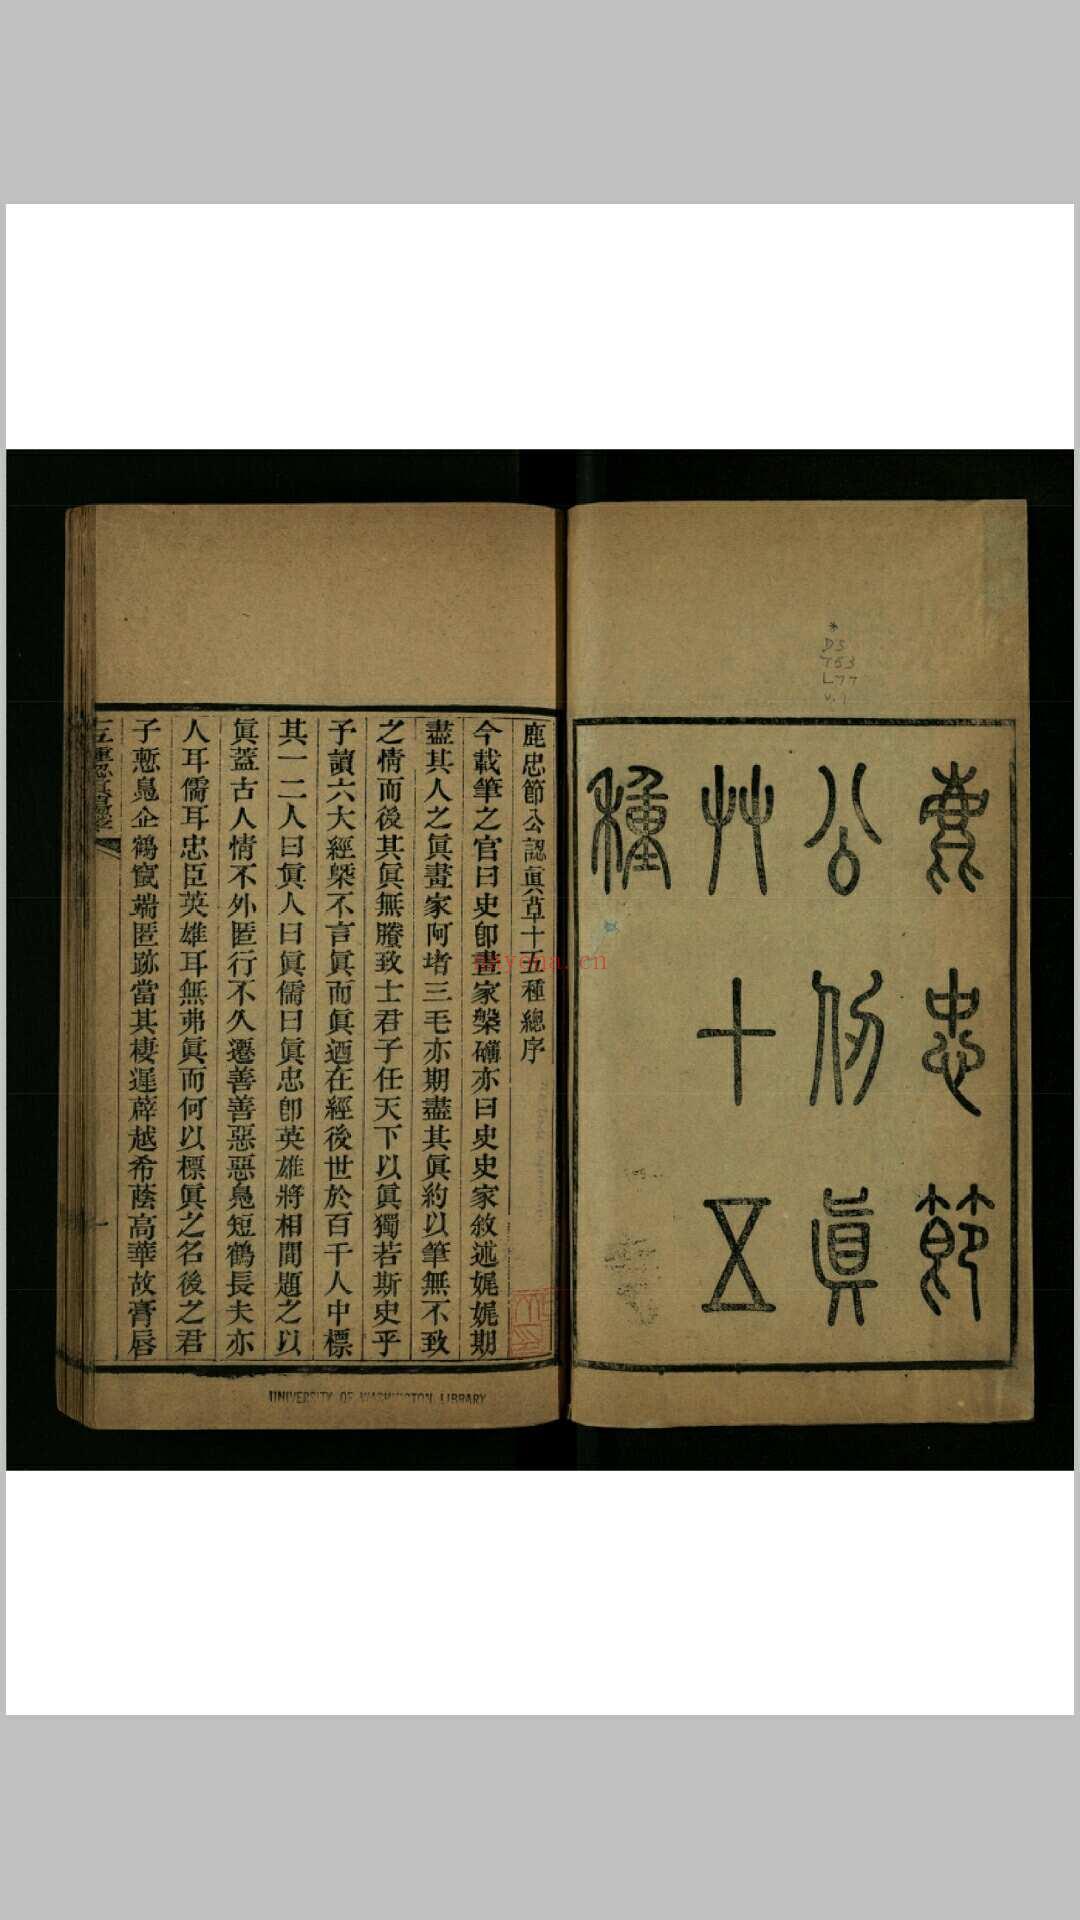 鹿忠節
公仞眞
艸十五
種
*
DS
753
L77
v.1
鹿忠節公認眞草十五種總序
今載筆之官曰史卽畫家槃礴亦曰史史家敘述娓娓期
盡其人之眞畫家阿堵三毛亦期盡其眞約以筆無不致
之情而後其眞無賸致士君子任天下以眞獨若斯史乎
予讀六大經槩不言眞而眞迺在經後世於百千人中標
其一二人曰眞人曰眞儒曰眞忠卽英雄將相間題之以
眞蓋古人情不外匿行不久遷善善惡惡鳧短鶴長夫亦
人耳儒耳忠臣英雄耳無弗眞而何以標眞之名後之君
子慙鳧企鶴竄端匿跡當其棲遲薜越希蔭高華故膏唇
一
UNIVERSITY OF WASHINGTON LIBRARY